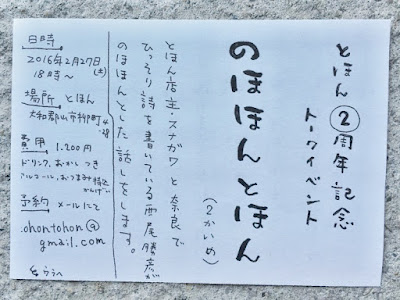 とほん②周年記念
トークイベント
のほほんとほん
(2かいめ)
とほん店主・スナガワと奈良で
ひっそり詩を書いている西尾勝彦が
のほほんとした話しをします。
日時
2016年2月27日(土)
18時〜
場所 とほん
大和郡山市柳町4-28
費用 1.200円
ドリンク、おかしつき
アルコール、おつまみ持込かんげい
予約 メールにて
ohontohon@
gmail.com